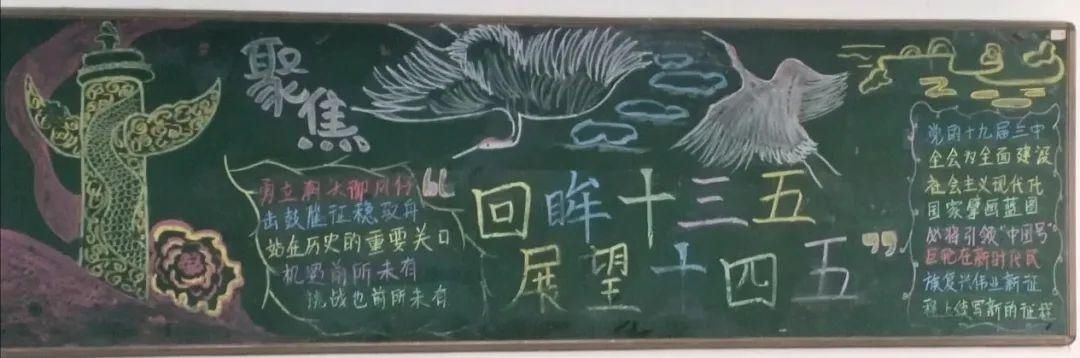 聚焦
勇立潮头御风行
击鼓催征稳驭舟
站在历史的重要关口
机遇前所未有
挑战也前所未有
“回眸十三五
展望十四五”
党的十九届三中
全会为全面建设
社会主义现代化
国家擘画蓝图
必将引领“中国号”
巨轮在新时代民
族复兴伟业新征
程上续写新的征程